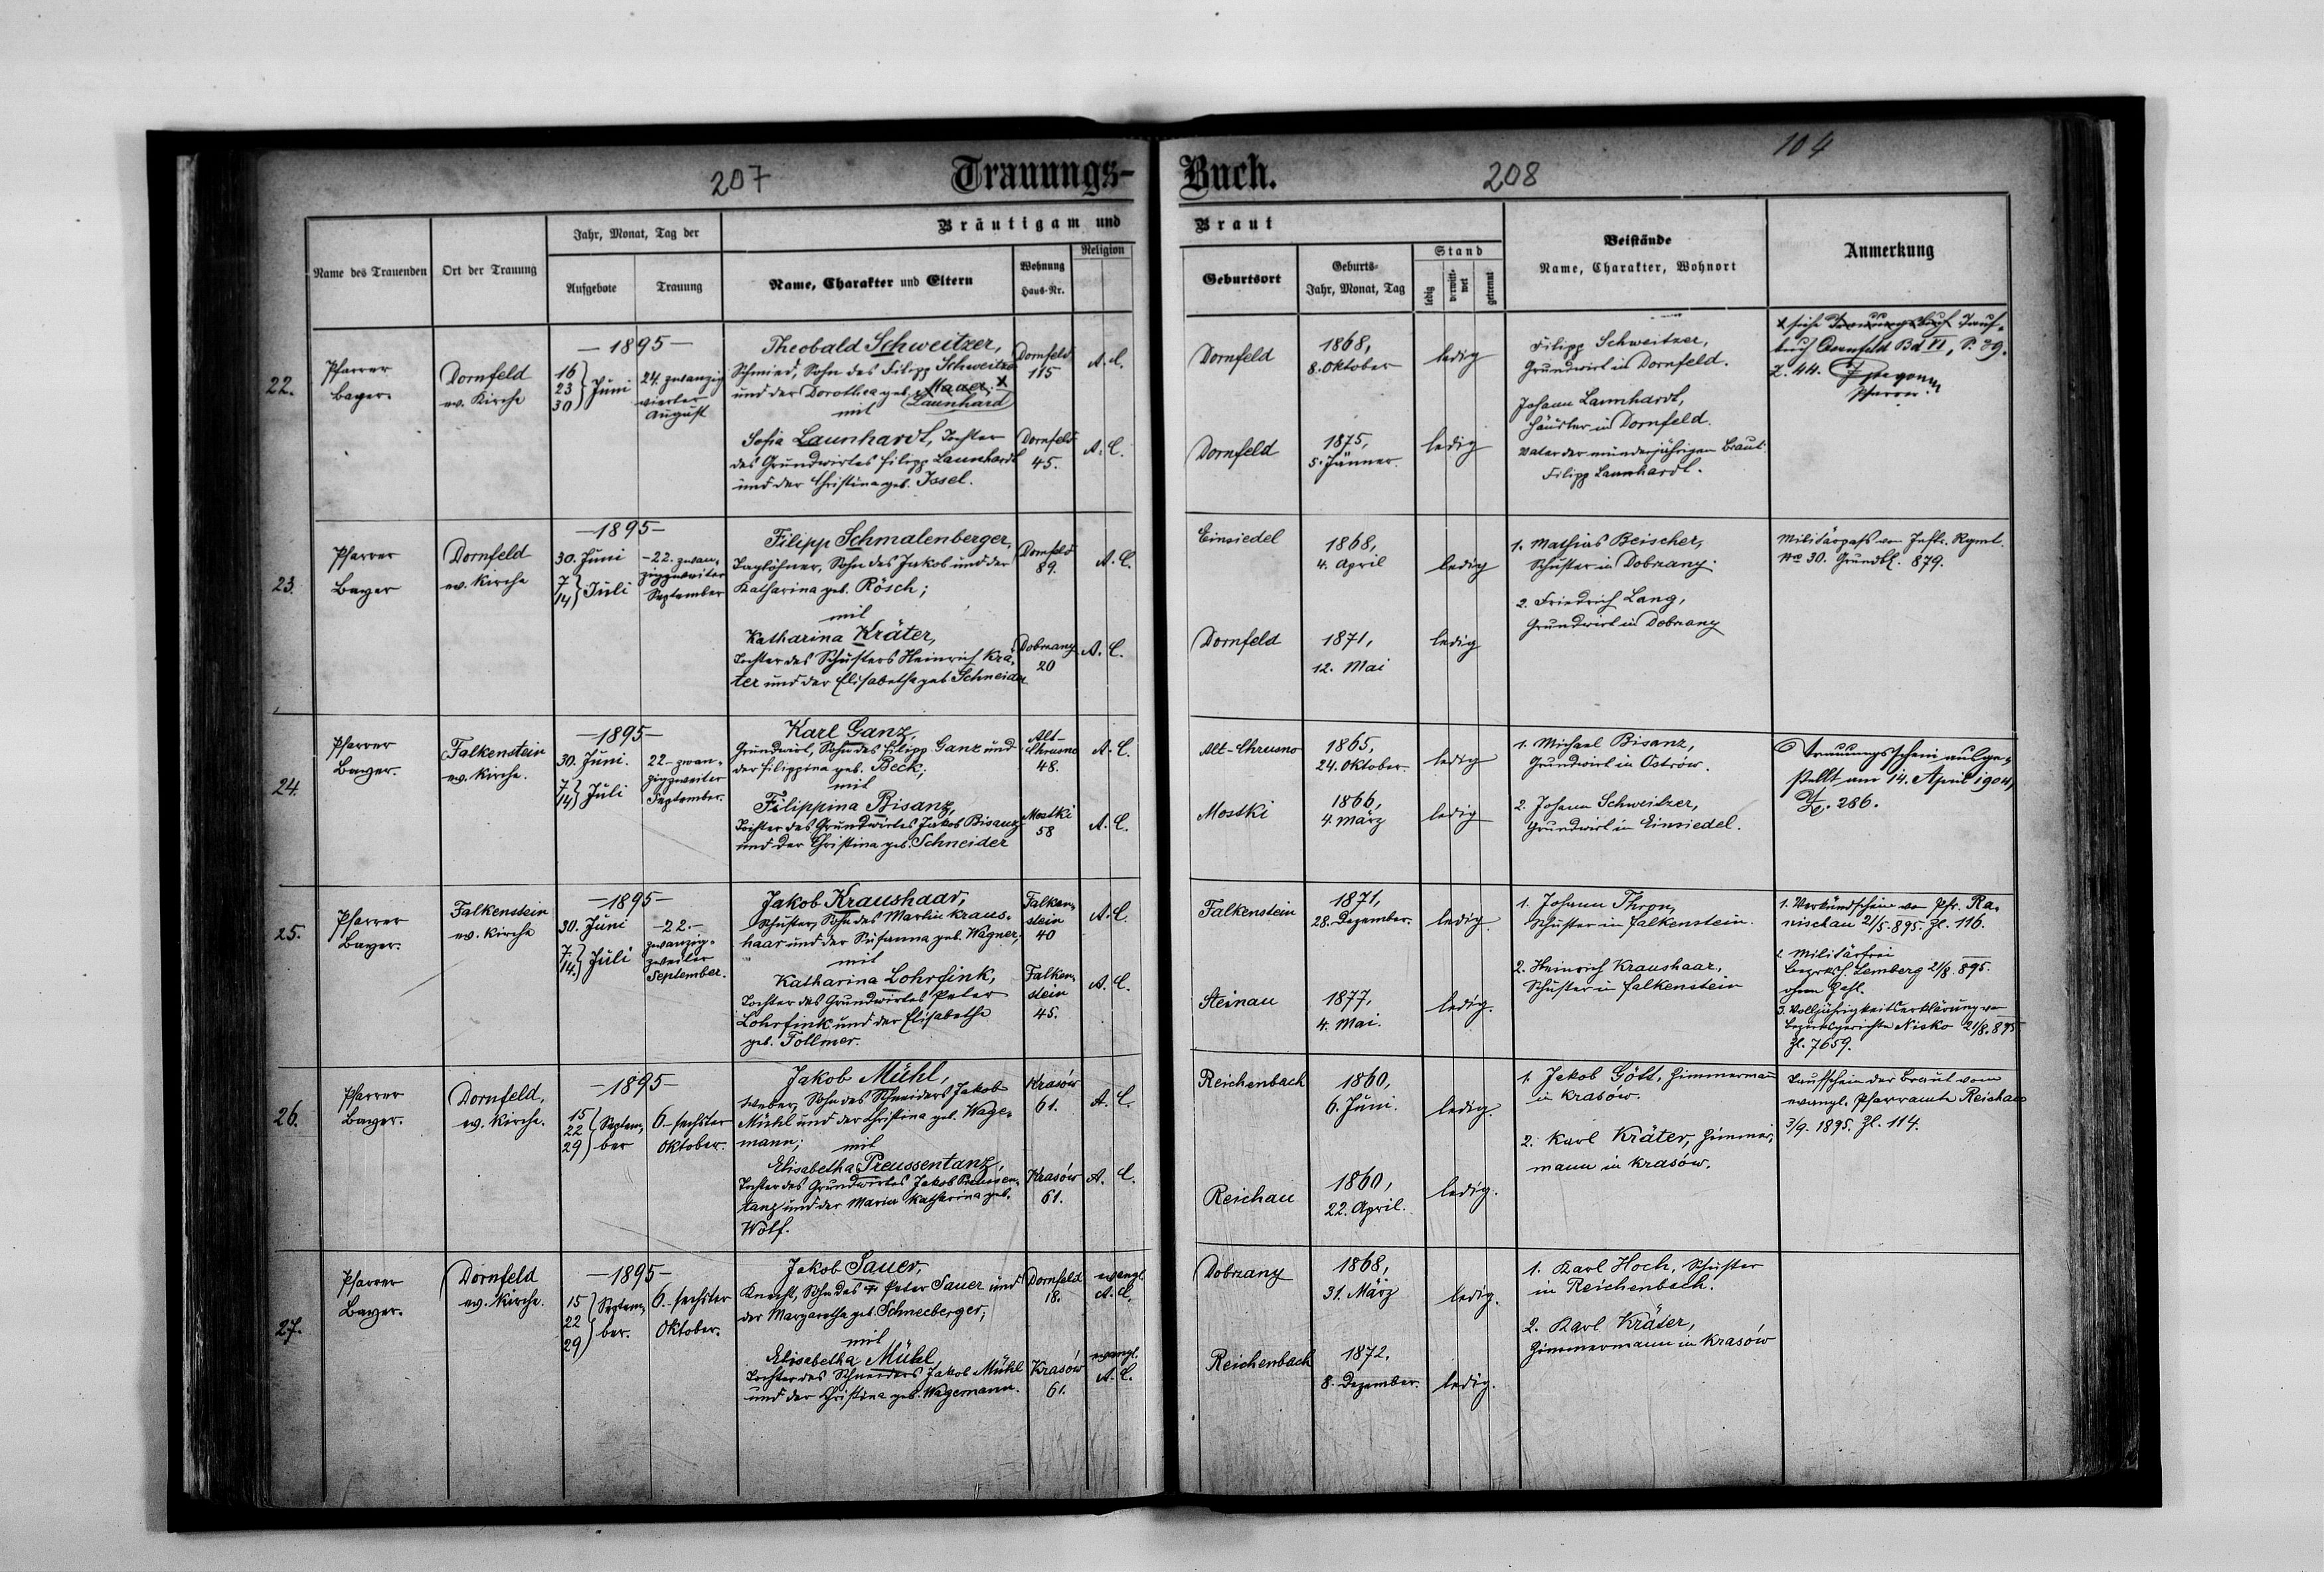 207
Trauungs-
Buch.
208
104
Bräutigam und
Braut
Name des Trauenden
Ort der Trauung
Jahr, Monat, Tag der
Aufgebote
Trauung
Name, Charakter und Eltern
Wohnung
Haus-Nr.
Religion
Geburtsort
Geburts-
Jahr, Monat, Tag
Stand
ledig
verwitt-
wet
getrennt
Beistände
Name, Charakter, Wohnort
Anmerkung
22.
Pfarrer
Bayer.
Dornfeld
ev. Kirche
—1895—
16
23 } Juni
30
24. zwanzig
vierter
August
Theobald Schweitzer,
Schmied, Sohn des Filipp Schweitzer
und der Dorothea geb. Mauer. x
Launhard
mit
Sofia Launhardt, Tochter
des Grundwirtes Filipp Launhardt
und der Christina geb. Issel.
Dornfeld
115
A. C.
Dornfeld
45.
A. C.
Dornfeld
1868,
8. Oktober
ledig
Dornfeld
1875,
5. Jänner.
ledig
Filipp Schweitzer,
Grundwirt in Dornfeld.
Johann Launhardt,
Häusler in Dornfeld.
Vater der minderjährigen Braut:
Filipp Launhardt.
x siehe Trauungsbuch Tauf-
buch Dornfeld Bd VI, S. 39.
Z. 44.
Pfarrer.
23.
Pfarrer
Bayer
Dornfeld
ev. Kirche
—1895—
30. Juni
7
14 } Juli
—22. zwan-
zigzweiter
September
Filipp Schmalenberger,
Taglöhner, Sohn des Jakob und der
Katharina geb. Rösch;
mit
Katharina Kräter,
Tochter des Schusters Heinrich Krä-
ter und der Elisabetha geb. Schneider
Dornfeld
89.
A. C.
Dobrzany
20
A. C.
Einsiedel
1868,
4. April
ledig
Dornfeld
1871,
12. Mai
ledig
1. Mathias Beischer,
Schuster in Dobrzany.
2. Friedrich Lang,
Grundwirt in Dobrzany
Militärpass vom Inftr. Rgmt.
No 30. Grundbl. 879.
24.
Pfarrer
Bayer.
Falkenstein
ev. Kirche.
—1895—
30. Juni.
7
14 } Juli
22- zwan-
zigzweiter
September.
Karl Ganz,
Grundwirt, Sohn des Filipp Ganz und
der Filippina geb. Beck;
mit
Filippina Bisanz,
Tochter des Grundwirtes Jakob Bisanz
und der Christina geb. Schneider
Alt-
Chrusno
48.
A. C.
Mostki
58
A. C.
Alt-Chrusno
1865,
24. Oktober.
ledig
Mostki
1866,
4. März
ledig
1. Michael Bisanz,
Grundwirt in Ostrów.
2. Johann Schweitzer,
Grundwirt in Einsiedel.
Trauungsschein ausge-
stellt am 14. April 1904,
Z. 286.
25.
Pfarrer
Bayer.
Falkenstein
ev. Kirche
—1895—
30. Juni
7.
14. } Juli
—22.—
zwanzig-
zweiter
September.
Jakob Kraushaar,
Schuster, Sohn des Martin Kraus-
haar und der Susanna geb. Wagner,
mit
Katharina Lohrfink,
Tochter des Grundwirtes Peter
Lohrfink und der Elisabetha
geb. Follmer.
Falken-
stein
40
A. C.
Falken-
stein
45.
A. C.
Falkenstein
1871,
28. Dezember.
ledig.
Steinau
1877,
4. Mai.
ledig.
1. Johann Thron,
Schuster in Falkenstein.
2. Heinrich Kraushaar,
Schuster in Falkenstein
1. Verkündschein vom Pfr. Ra-
nischau 21/5. 895. Zl. 116.
2. Militärfrei
Bezirksh. Lemberg 21/8. 895.
ohne Zahl.
3. Volljährigkeitserklärung vom
Bezirksgerichte Nisko 21/8. 895
Zl. 7659.
26.
Pfarrer
Bayer.
Dornfeld,
ev. Kirche.
—1895—
15
22 } Septem-
29 ber
6.- sechster
Oktober.
Jakob Mühl,
Weber, Sohn des Schneiders Jakob
Mühl und der Christina geb. Wage-
mann;
mit
Elisabetha Preussentanz,
Tochter des Grundwirtes Jakob Preussen-
tanz und der Maria Katharina geb.
Wolf.
Krasów
61.
A. C.
Krasów
61.
A. C.
Reichenbach
1860,
6. Juni.
ledig.
Reichau
1860,
22. April.
ledig.
1. Jakob Gött, Zimmermann
in Krasów.
2. Karl Kräter, Zimmer-
mann in Krasów.
Taufschein der Braut vom
evangl. Pfarramte Reichau
3/9. 1895. Zl. 114.
27.
Pfarrer
Bayer.
Dornfeld
ev. Kirche.
—1895—
15
22 } Septem-
29 ber.
6.- sechster
Oktober.
Jakob Sauer,
Knecht, Sohn des + Peter Sauer und
der Margaretha geb. Schneeberger;
mit
Elisabetha Mühl,
Tochter des Schneiders Jakob Mühl
und der Christina geb. Wagemann.
Dornfeld
18.
evangl.
A. C.
Krasów
61.
evangl.
A. C.
Dobrzany
1868,
31. März
ledig.
Reichenbach
1872.
8. Dezember.
ledig.
1. Karl Hoch, Schuster
in Reichenbach.
2. Karl Kräter,
Zimmermann in Krasów